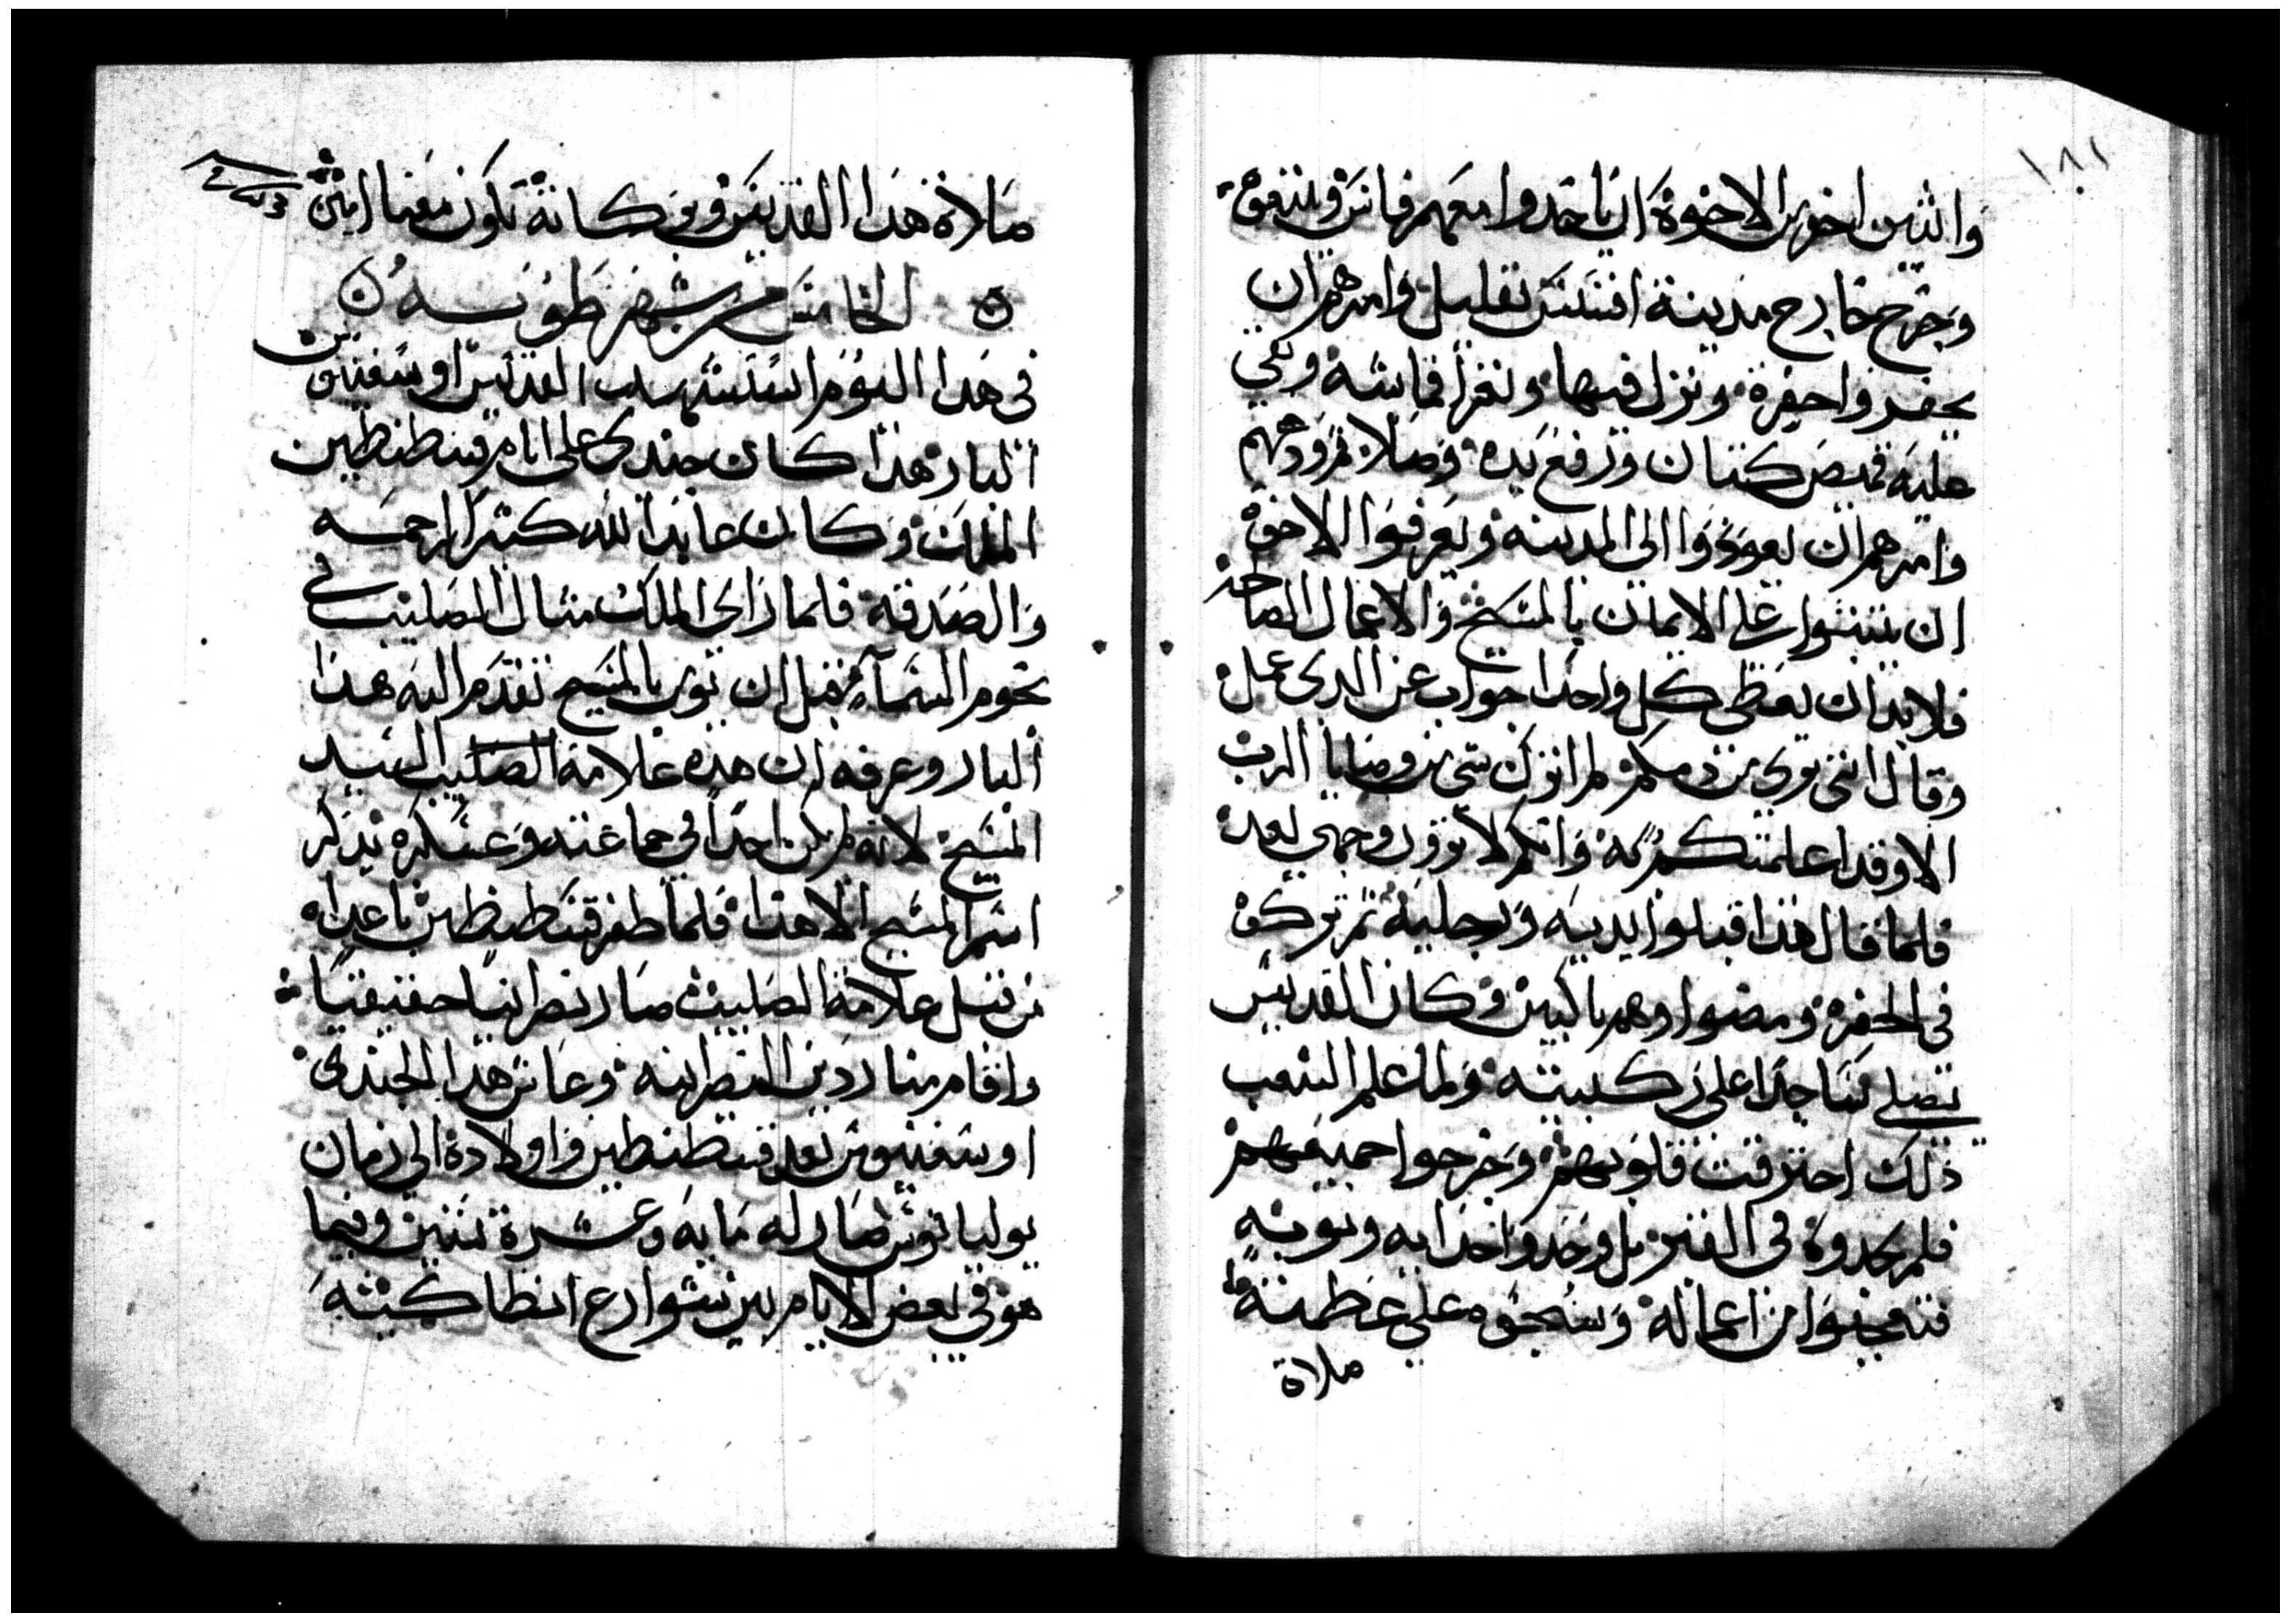 ١٨٢
واثنين اخرين الاخوة ان ياخدوا معهم فانزو
وخرج خارج مدينة افسس بقليل وامرهم ان
يحفروا حفرة ونزل فيها ونزع قماشه وبقي
عليه قميص كتان ورفع يده وصلا ثم ودعهم
وامرهم ان يعودوا الى المدينه ويعرفوا الاخوة
ان يثبتوا على الايمان بالمسيح والاعمال الصالحه
فلا بد ان يعطى كل واحدا جواب عن الدى عمل
وقال اننى برى من دمكم لم اترك شى من وصايا الرب
الا وقد اعلمتكم به وانكم لا ترون وجهي بعد
فلما قال هدا قبلوا يديه ورجليه ثم تركوه
في الحفرة ومضوا وهم باكيين وكان القديس
يصلي ساجدا على ركبتيه ولما علم الشعب
ذلك احترقت قلوبهم وخرجوا جميعهم
فلم يجدوه في القبر بل وجدوا حدايه وتوبه
فتعجبوا من اعماله وسبحوه على عظمته
صلاة
صلاة هدا القديس وبركاته تكون معنا امين
الخامس من شهر طوبه
في هدا اليوم استشهد القديس اوسغنيوس
البار هدا كان جندى على ايام قسطنطين
الملك وكان عابدا لله كثير الرحمه
والصدقه فلما راى الملك مثال الصليب في
نجوم السماء قبل ان يومن بالمسيح تقدم اليه هدا
البار وعرفه ان هده علامة الصليب السيد
المسيح لانه لم يكن احدا في جماعته وعسكره يدكر
اسم المسيح الا هدا فلما ظفر قسطنطين باعداه
من قبل علامة الصليب صار نصرانيا حقيقيا
واقام منار دين النصرانيه وعاش هدا الجندى
اوسغنيوس بعد قسطنطين واولاده الى زمان
يوليانوس صار له مايه وعشرة سنين وفيما
هو في بعض الايام بين شوارع انطاكيه